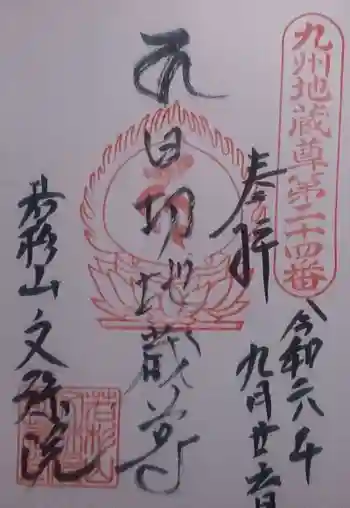 九州地蔵尊第二十四番
奉拝
令和六年
九月廿六日
五日切地蔵尊
若杉山文殊院